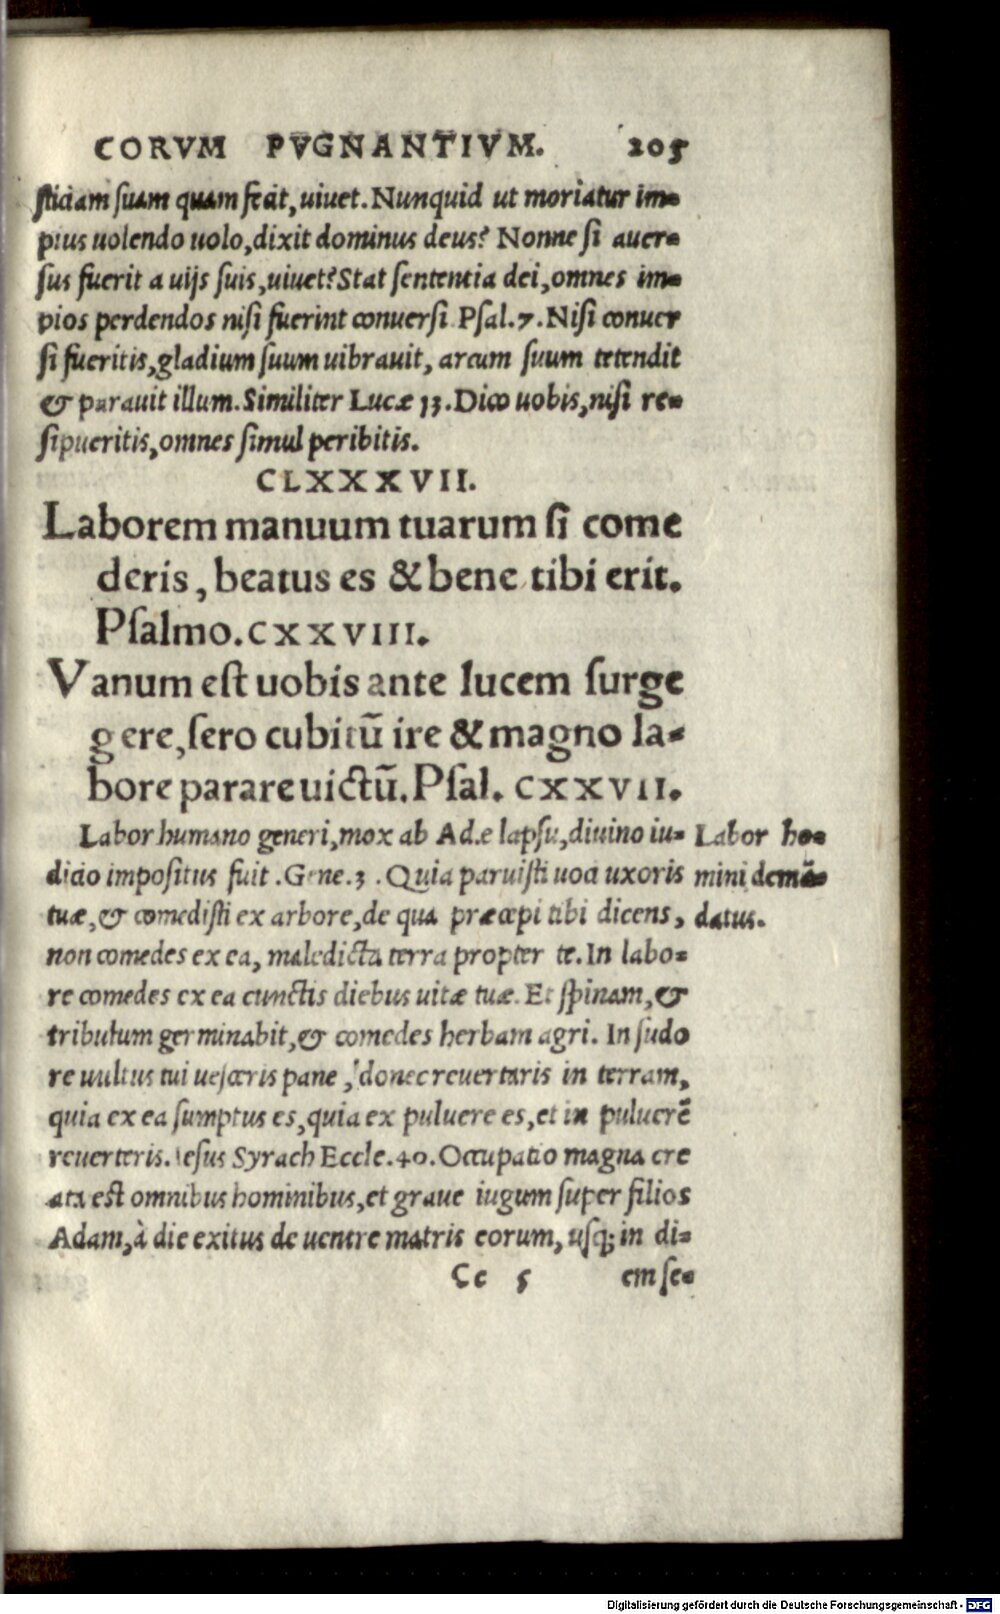 CORVM PVGNANTIVM. 205
sticiam suam quam fecit, uiuet. Nunquid ut moriatur im-
pius uolendo uolo, dixit dominus deus? Nonne si auer-
sus fuerit a uijs suis, uiuet? Stat sententia dei, omnes im-
pios perdendos nisi fuerint conuersi. Psal. 7. Nisi conuer
si fueritis, gladium suum uibrauit, arcum suum tetendit
& parauit illum. Similiter Lucæ 13. Dico uobis, nisi re-
sipueritis, omnes simul peribitis.
CLXXXVII.
Laborem manuum tuarum si come
deris, beatus es & bene tibi erit.
Psalmo. CXXVIII.
Vanum est uobis ante lucem surge
gere, sero cubitū ire & magno la-
bore parare uictū. Psal. CXXVII.
Labor humano generi, mox ab Adæ lapsu, diuino iu-
dicio impositus fuit. Gene. 3. Quia paruisti uoci uxoris
tuæ, & comedisti ex arbore, de qua præcepi tibi dicens,
non comedes ex ea, maledicta terra propter te. In labo-
re comedes ex ea cunctis diebus uitæ tuæ. Et spinam, &
tributum germinabit, & comedes herbam agri. In sudo
re uultus tui uesceris pane, donec reuertaris in terram,
quia ex ea sumptus es, quia ex puluere es, et in puluerē
reuerteris. Iesus Syrach Eccle. 40. Occupatio magna cre
ata est omnibus hominibus, et graue iugum super filios
Adam, à die exitus de uentre matris eorum, usq; in di-
Cc 5 em se-
Labor ho-
mini demā-
datus.
Digitalisierung gefördert durch die Deutsche Forschungsgemeinschaft - DFG